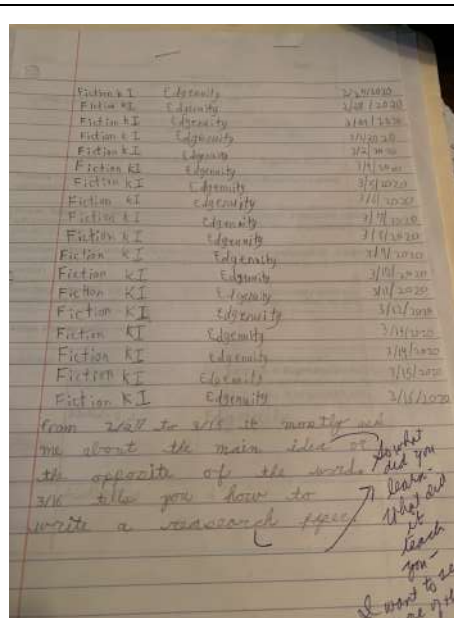 Fiction KI Edgenuity 2/27/2020
Fiction KI Edgenuity 2/28/2020
Fiction KI Edgenuity
Fiction KI Edgenuity
Fiction KI Edgenuity
Fiction KI Edgenuity
Fiction KI Edgenuity 3/5/2020
Fiction KI Edgenuity 3/6/2020
Fiction KI Edgenuity 3/7/2020
Fiction KI Edgenuity 3/8/2020
Fiction KI Edgenuity 3/9/2020
Fiction KI Edgenuity 3/10/2020
Fiction KI Edgenuity 3/11/2020
Fiction KI Edgenuity 3/12/2020
Fiction KI Edgenuity 3/13/2020
Fiction KI Edgenuity 3/14/2020
Fiction KI Edgenuity 3/15/2020
Fiction KI Edgenuity 3/16/2020
From 2/27 to 3/15 it mostly ask
me about the main idea or
the opposite of the word.
3/16 you how to
write a reasearch
So what
did you
learn.
What did
it
teach
you-
I want to